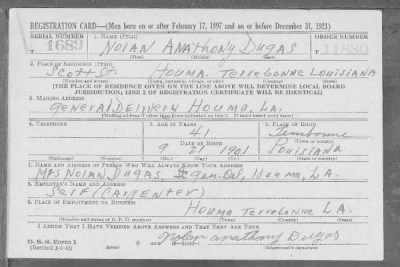 REGISTRATION CARD—(Men born on or after February 17, 1897 and on or before December 31, 1921)
SERIAL NUMBER 1. NAME (Print) ORDER NUMBER
T 1689 NOLAN ANATHONY DUGAS T 11880
(First) (Middle) (Last)
2. PLACE OF RESIDENCE (Print)
Scott St. HOUMA TERREBONNE LOUISIANA
(Number and street) (Town, township, village, or city) (County) (State)
[THE PLACE OF RESIDENCE GIVEN ON THE LINE ABOVE WILL DETERMINE LOCAL BOARD
JURISDICTION; LINE 2 OF REGISTRATION CERTIFICATE WILL BE IDENTICAL]
3. MAILING ADDRESS
General Delivery Houma, LA.
[Mailing address if other than place indicated on line 2. If same insert word same]
4. TELEPHONE 5. AGE IN YEARS 6. PLACE OF BIRTH
41 Terrebonne
DATE OF BIRTH (Town or county)
9 21 1901 Louisiana
(Exchange) (Number) (Mo.) (Day) (Yr.) (State or country)
7. NAME AND ADDRESS OF PERSON WHO WILL ALWAYS KNOW YOUR ADDRESS
MRS NOLAN DUGAS, Gen. Del, Houma, LA.
8. EMPLOYER'S NAME AND ADDRESS
Self (CARPENTER)
9. PLACE OF EMPLOYMENT OR BUSINESS
HOUMA Terrebonne LA.
(Number and street or R. F. D. number) (Town) (County) (State)
I AFFIRM THAT I HAVE VERIFIED ABOVE ANSWERS AND THAT THEY ARE TRUE.
D. S. S. Form 1
(Revised 2-1-42)
Nolan Anathony Dugas
(Registrant's signature)